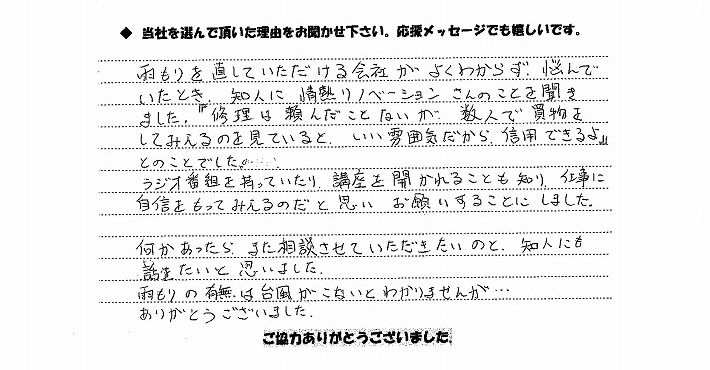 ◆ 当社を選んで頂いた理由をお聞かせ下さい。応援メッセージでも嬉しいです。
雨もりを直していただける会社が よくわからず 悩んで
いたとき、知人に 情熱リノベーション さんのことを聞き
ました。『修理は 頼んだことないが、数人で 買物を
してみえるのを見ていると、いい雰囲気だから、信用できるよ』
とのことでした。
ラジオ番組を持っていたり、講座を開かれることも知り、仕事に
自信をもってみえるのだと思い お願いすることに しました。
何かあったら、また相談させていただきたいのと、知人にも
話をしたいと思いました。
雨もりの有無は台風がこないとわかりませんが…
ありがとうございました。
ご協力ありがとうございました。